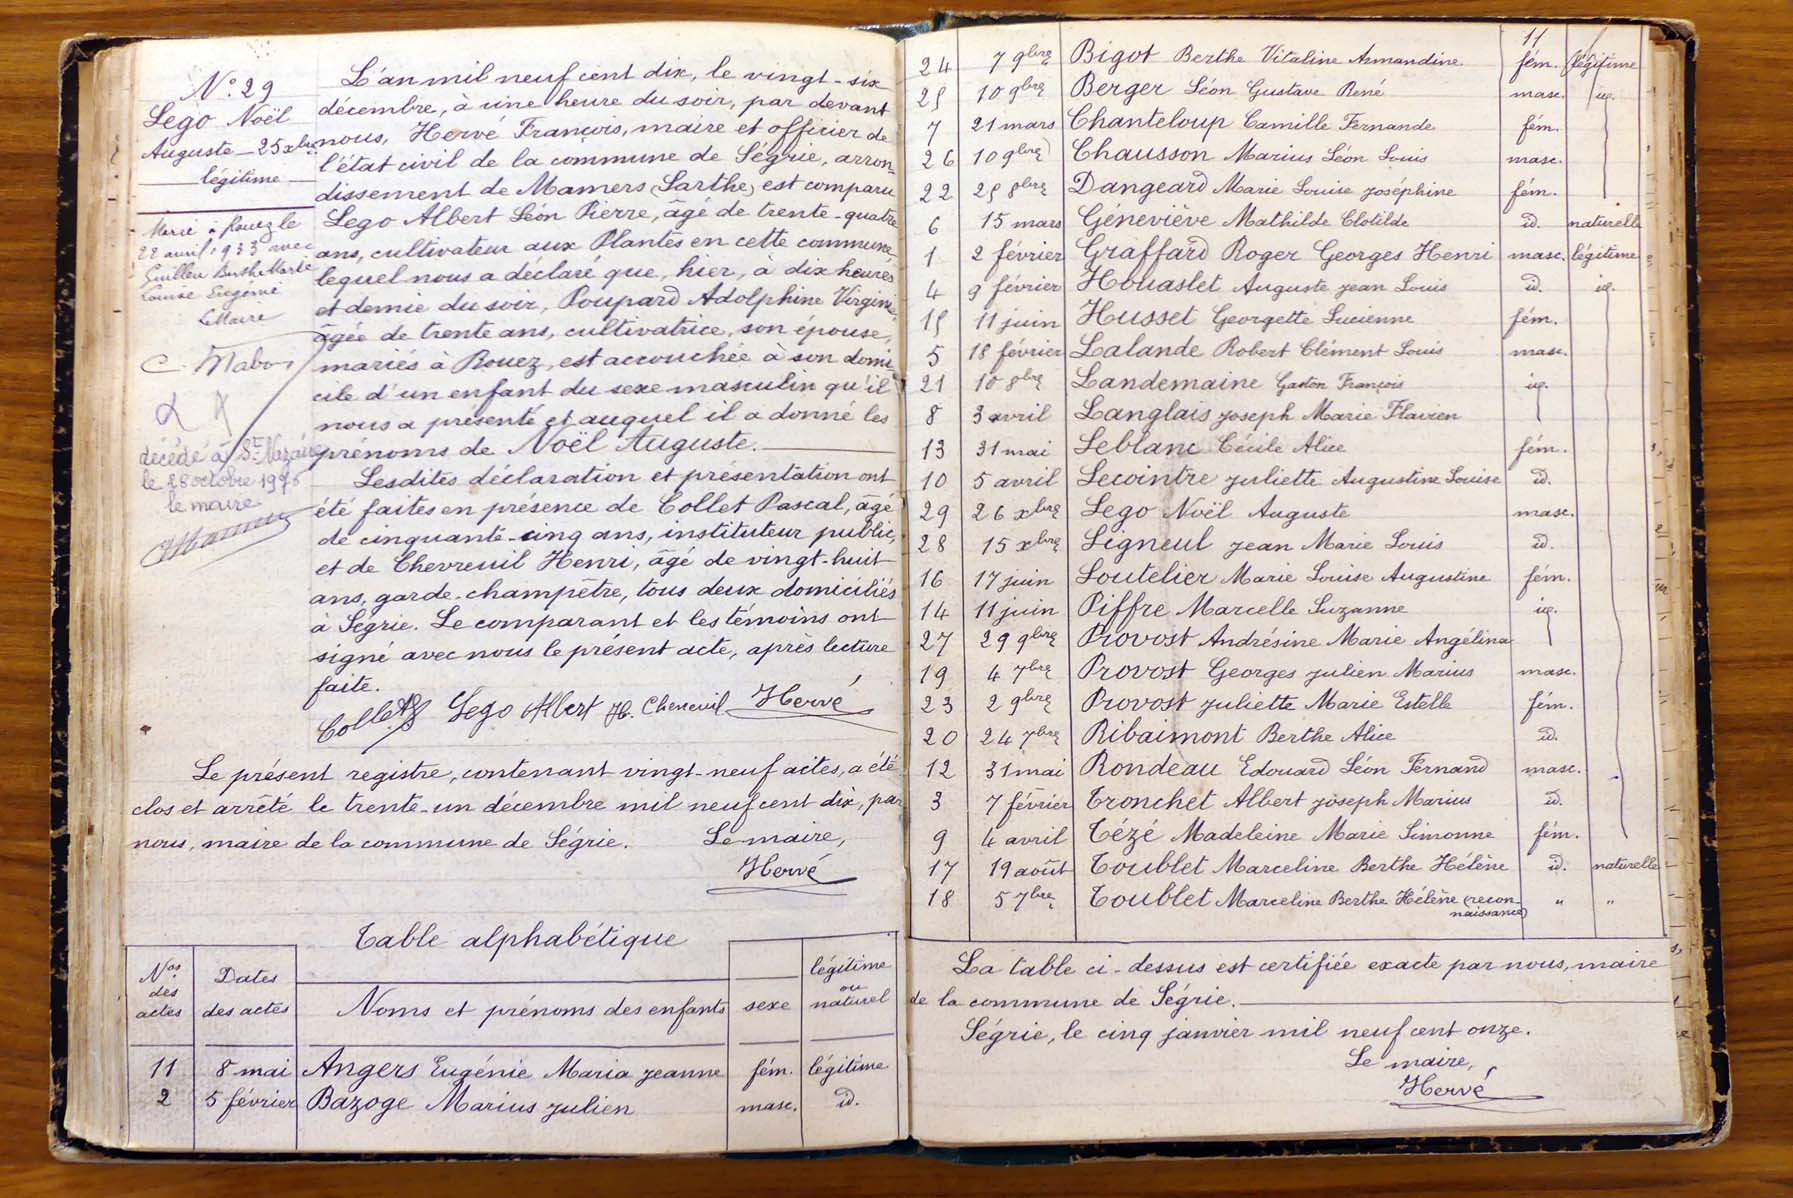 N.º 29
Lego Noël
Auguste – 25 xbre
légitime
Marié à Rouez le
22 avril 1933 avec
Guilleu Berthe Marie
Louise Eugénie
Le Maire
décédé à St Nazaire
le 28 octobre 1976
le maire
L'an mil neuf cent dix, le vingt-six
décembre, à une heure du soir, par devant
nous, Hervé François, maire et officier de
l'état civil de la commune de Ségrie, arron-
dissement de Mamers (Sarthe) est comparu
Lego Albert Léon Pierre, âgé de trente-quatre
ans, cultivateur aux Plantes en cette commune,
lequel nous a déclaré que, hier, à dix heures
et demie du soir, Poupard Adolphine Virginie,
âgée de trente ans, cultivatrice, son épouse,
mariés à Rouez, est accouchée à son domi-
cile d'un enfant du sexe masculin qu'il
nous a présenté et auquel il a donné les
prénoms de Noël Auguste.
Lesdites déclaration et présentation ont
été faites en présence de Collet Pascal, âgé
de cinquante-cinq ans, instituteur public,
et de Chevreuil Henri, âgé de vingt-huit
ans, garde-champêtre, tous deux domiciliés
à Ségrie. Le comparant et les témoins ont
signé avec nous le présent acte, après lecture
faite.
Collet Lego Albert H. Chevreuil Hervé
Le présent registre, contenant vingt-neuf actes, a été
clos et arrêté le trente-un décembre mil neuf cent dix, par
nous, maire de la commune de Ségrie. Le maire,
Hervé
Table alphabétique
Nos des actes | Dates des actes | Noms et prénoms des enfants | sexe | légitime ou naturel
11 8 mai Angers Eugénie Maria Jeanne fém. légitime
2 5 février Bazoge Marius Julien masc. id.
11
24 7 9bre Bigot Berthe Vitaline Armandine fém. légitime
25 10 9bre Berger Léon Gustave René masc. id.
7 21 mars Chanteloup Camille Fernande fém.
26 10 9bre Chausson Marius Léon Louis masc.
22 25 8bre Dangeard Marie Louise Joséphine fém.
6 15 mars Géneviève Mathilde Clotilde id. naturelle
1 2 février Graffard Roger Georges Henri masc. légitime
4 9 février Houaslet Auguste Jean Louis id. id.
15 11 juin Husset Georgette Lucienne fém.
5 18 février Lalande Robert Clément Louis masc.
21 10 8bre Landemaine Gaston François id.
8 3 avril Langlais Joseph Marie Flavien
13 31 mai Leblanc Cécile Alice fém.
10 5 avril Lecointre Juliette Augustine Louise id.
29 26 xbre Lego Noël Auguste masc.
28 15 xbre Légneul Jean Marie Louis id.
16 17 juin Loutelier Marie Louise Augustine fém.
14 11 juin Piffre Marcelle Suzanne id.
27 29 9bre Provost Andrésine Marie Angélina
19 4 7bre Provost Georges Julien Marius masc.
23 2 9bre Provost Juliette Marie Estelle fém.
20 24 7bre Ribaimont Berthe Alice id.
12 31 mai Rondeau Edouard Léon Fernand masc.
3 7 février Tronchet Albert Joseph Marius id.
9 4 avril Tézé Madeleine Marie Simonne fém.
17 19 août Toublet Marceline Berthe Hélène id. naturelle
18 5 7bre Toublet Marceline Berthe Hélène (recon- " "
naissance)
La table ci-dessus est certifiée exacte par nous, maire
de la commune de Ségrie.
Ségrie, le cinq janvier mil neuf cent onze.
Le maire,
Hervé